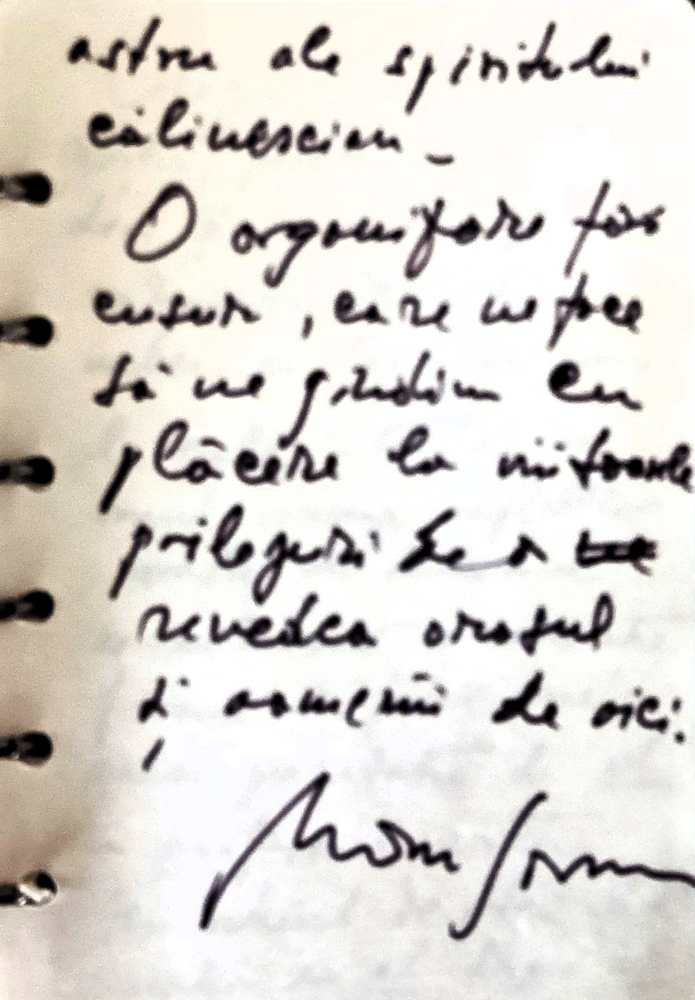 astre ale spiritului
călinescian –
O organizare fără
cusur, care ne face
să ne gîndim cu
plăcere la viitoarele
prilejuri de a
revedea orașul
și oamenii de aici.